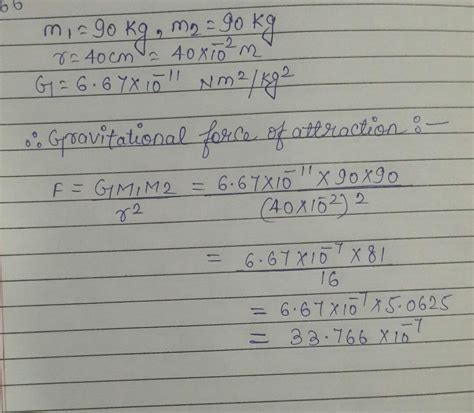 66
m₁ = 90 kg, m₂ = 90 kg
r = 40cm = 40×10⁻² m
G = 6.67×10⁻¹¹ Nm²/kg²
∴ Gravitational force of attraction :—
F = GM₁M₂/r² = 6.67×10⁻¹¹×90×90/(40×10⁻²)²
= 6.67×10⁻⁷×81/16
= 6.67×10⁻⁷×5.0625
= 33.766×10⁻⁷